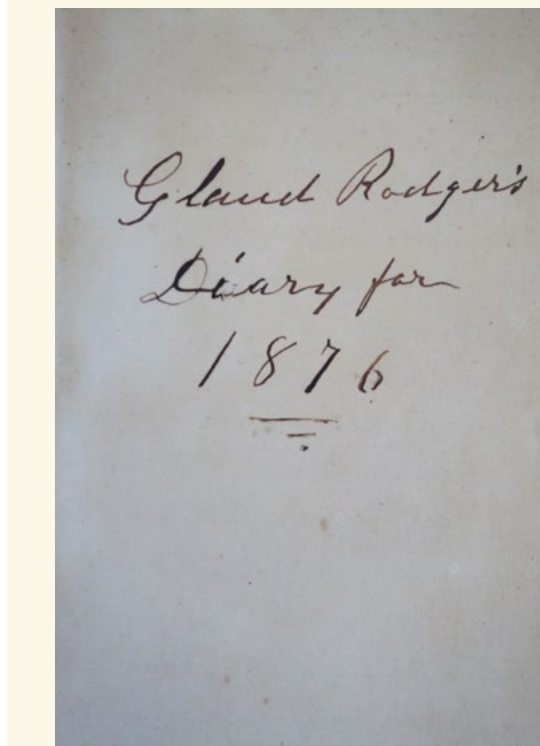 Glaud Rodger's
Diary for
1876